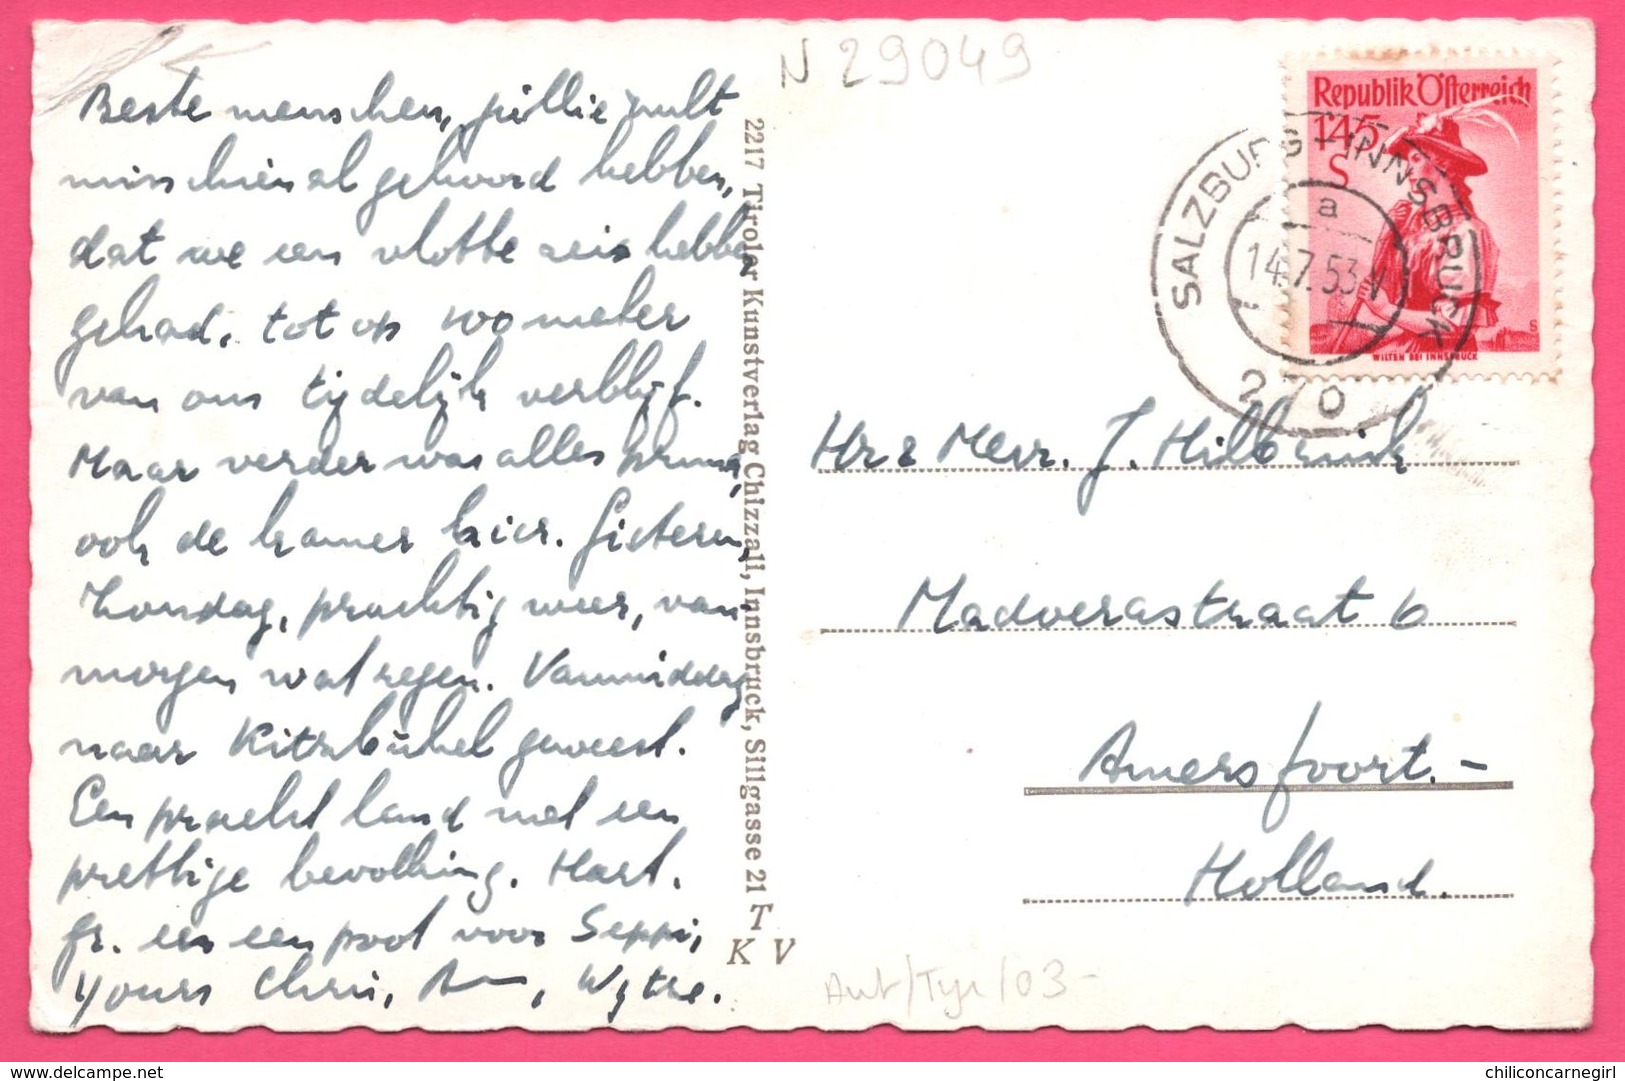 Beste menschen, jullie zult
misschien al gehoord hebben,
dat we een vlotte reis hebben
gehad, tot op 100 meter
van ons tijdelijk verblijf.
Maar verder was alles prima,
ook de kamer hier. Gisteren,
Zondag, prachtig weer, van-
morgen wat regen. Vanmiddag
naar Kitzbühel geweest.
Een pracht land met een
prettige bevolking. Hart.
gr. en een poot voor Seppi,
Yours Chris, Wytze.
2217 Tiroler Kunstverlag Chizzali, Innsbruck, Sillgasse 21
T
K V
N 29049
Republik Österreich
1'45
S
WILTEN BEI INNSBRUCK
SALZBURG - INNSBRUCK
a
14.7.53
270
Hr & Mevr. J. Hilbrink
Madoerastraat 6
Amersfoort. -
Holland.
Aut/Tyr/03-
chiliconcarnegirl